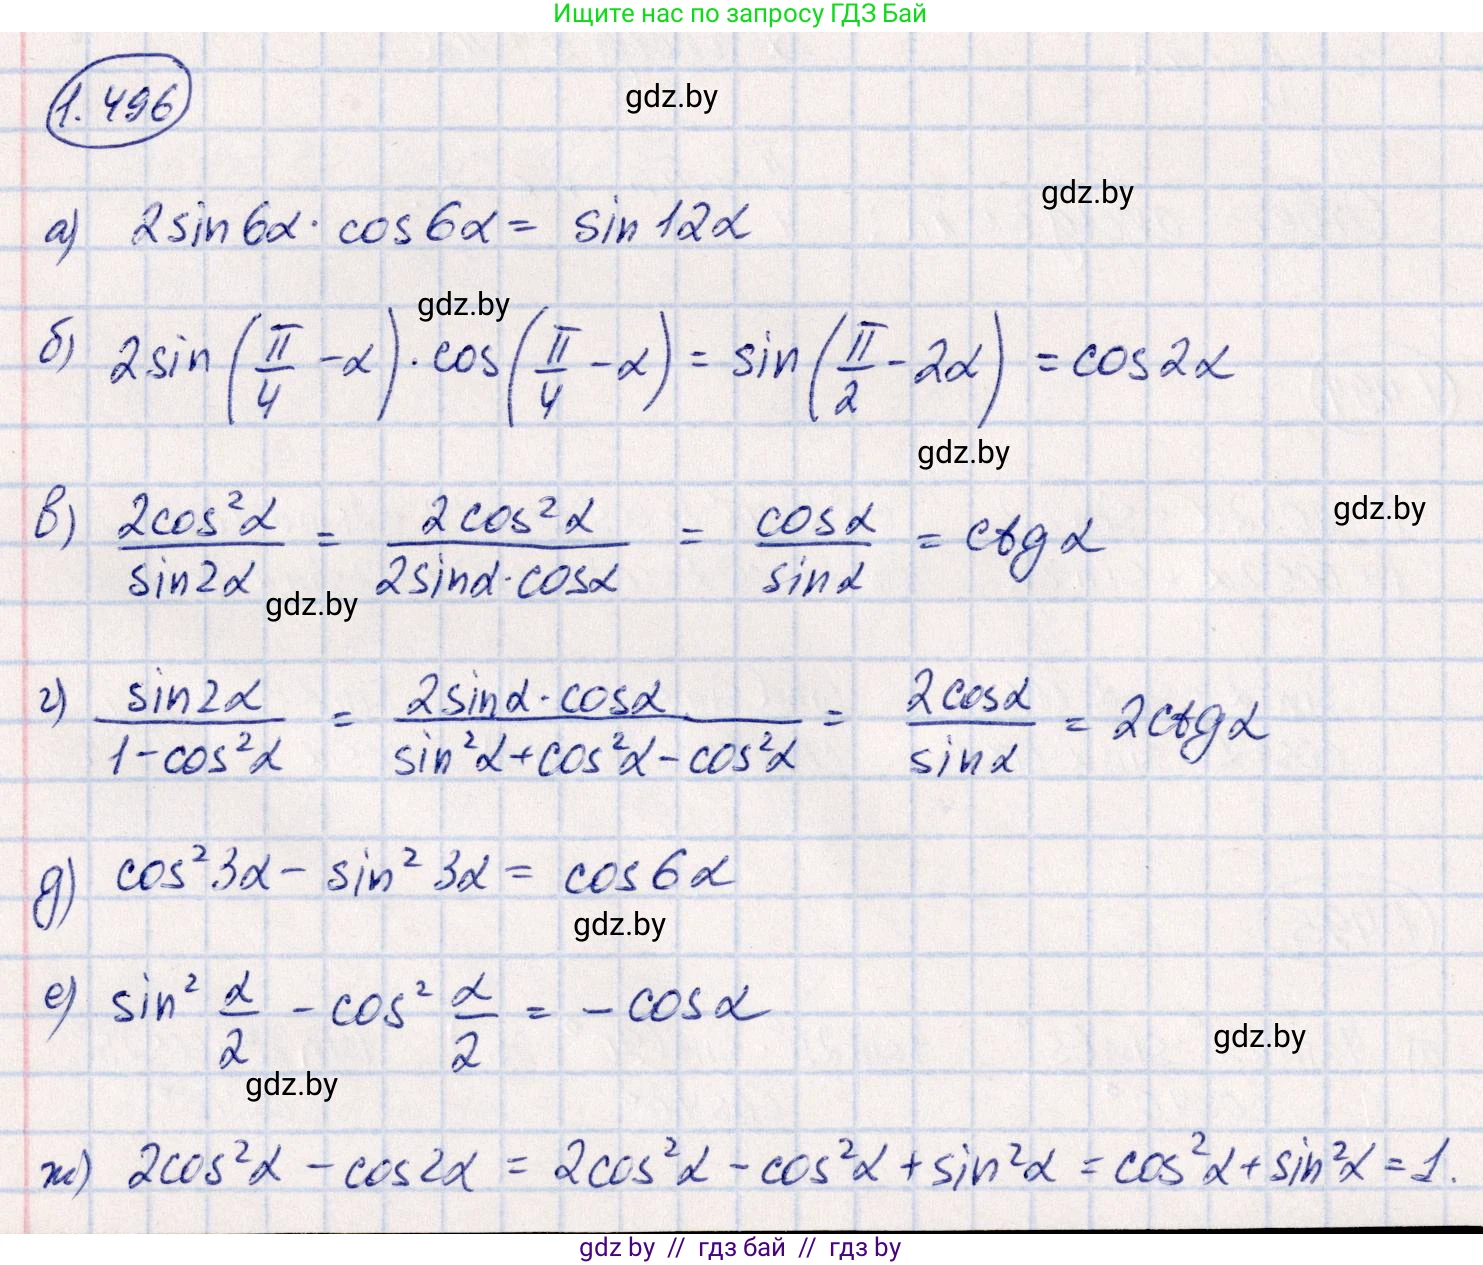 Ищите нас по запросу ГДЗ Бай
1.496
gdz.by
gdz.by
а) 2sin6α · cos6α = sin12α
gdz.by
б) 2sin(π/4 − α) · cos(π/4 − α) = sin(π/2 − 2α) = cos2α
gdz.by
gdz.by
в) 2cos²α/sin2α = 2cos²α/2sinα·cosα = cosα/sinα = ctgα
gdz.by
г) sin2α/1−cos²α = 2sinα·cosα/sin²α+cos²α−cos²α = 2cosα/sinα = 2ctgα
д) cos²3α − sin²3α = cos6α
gdz.by
е) sin² α/2 − cos² α/2 = − cosα
gdz.by
gdz.by
ж) 2cos²α − cos2α = 2cos²α − cos²α + sin²α = cos²α + sin²α = 1.
gdz.by // гдз бай // гдз by